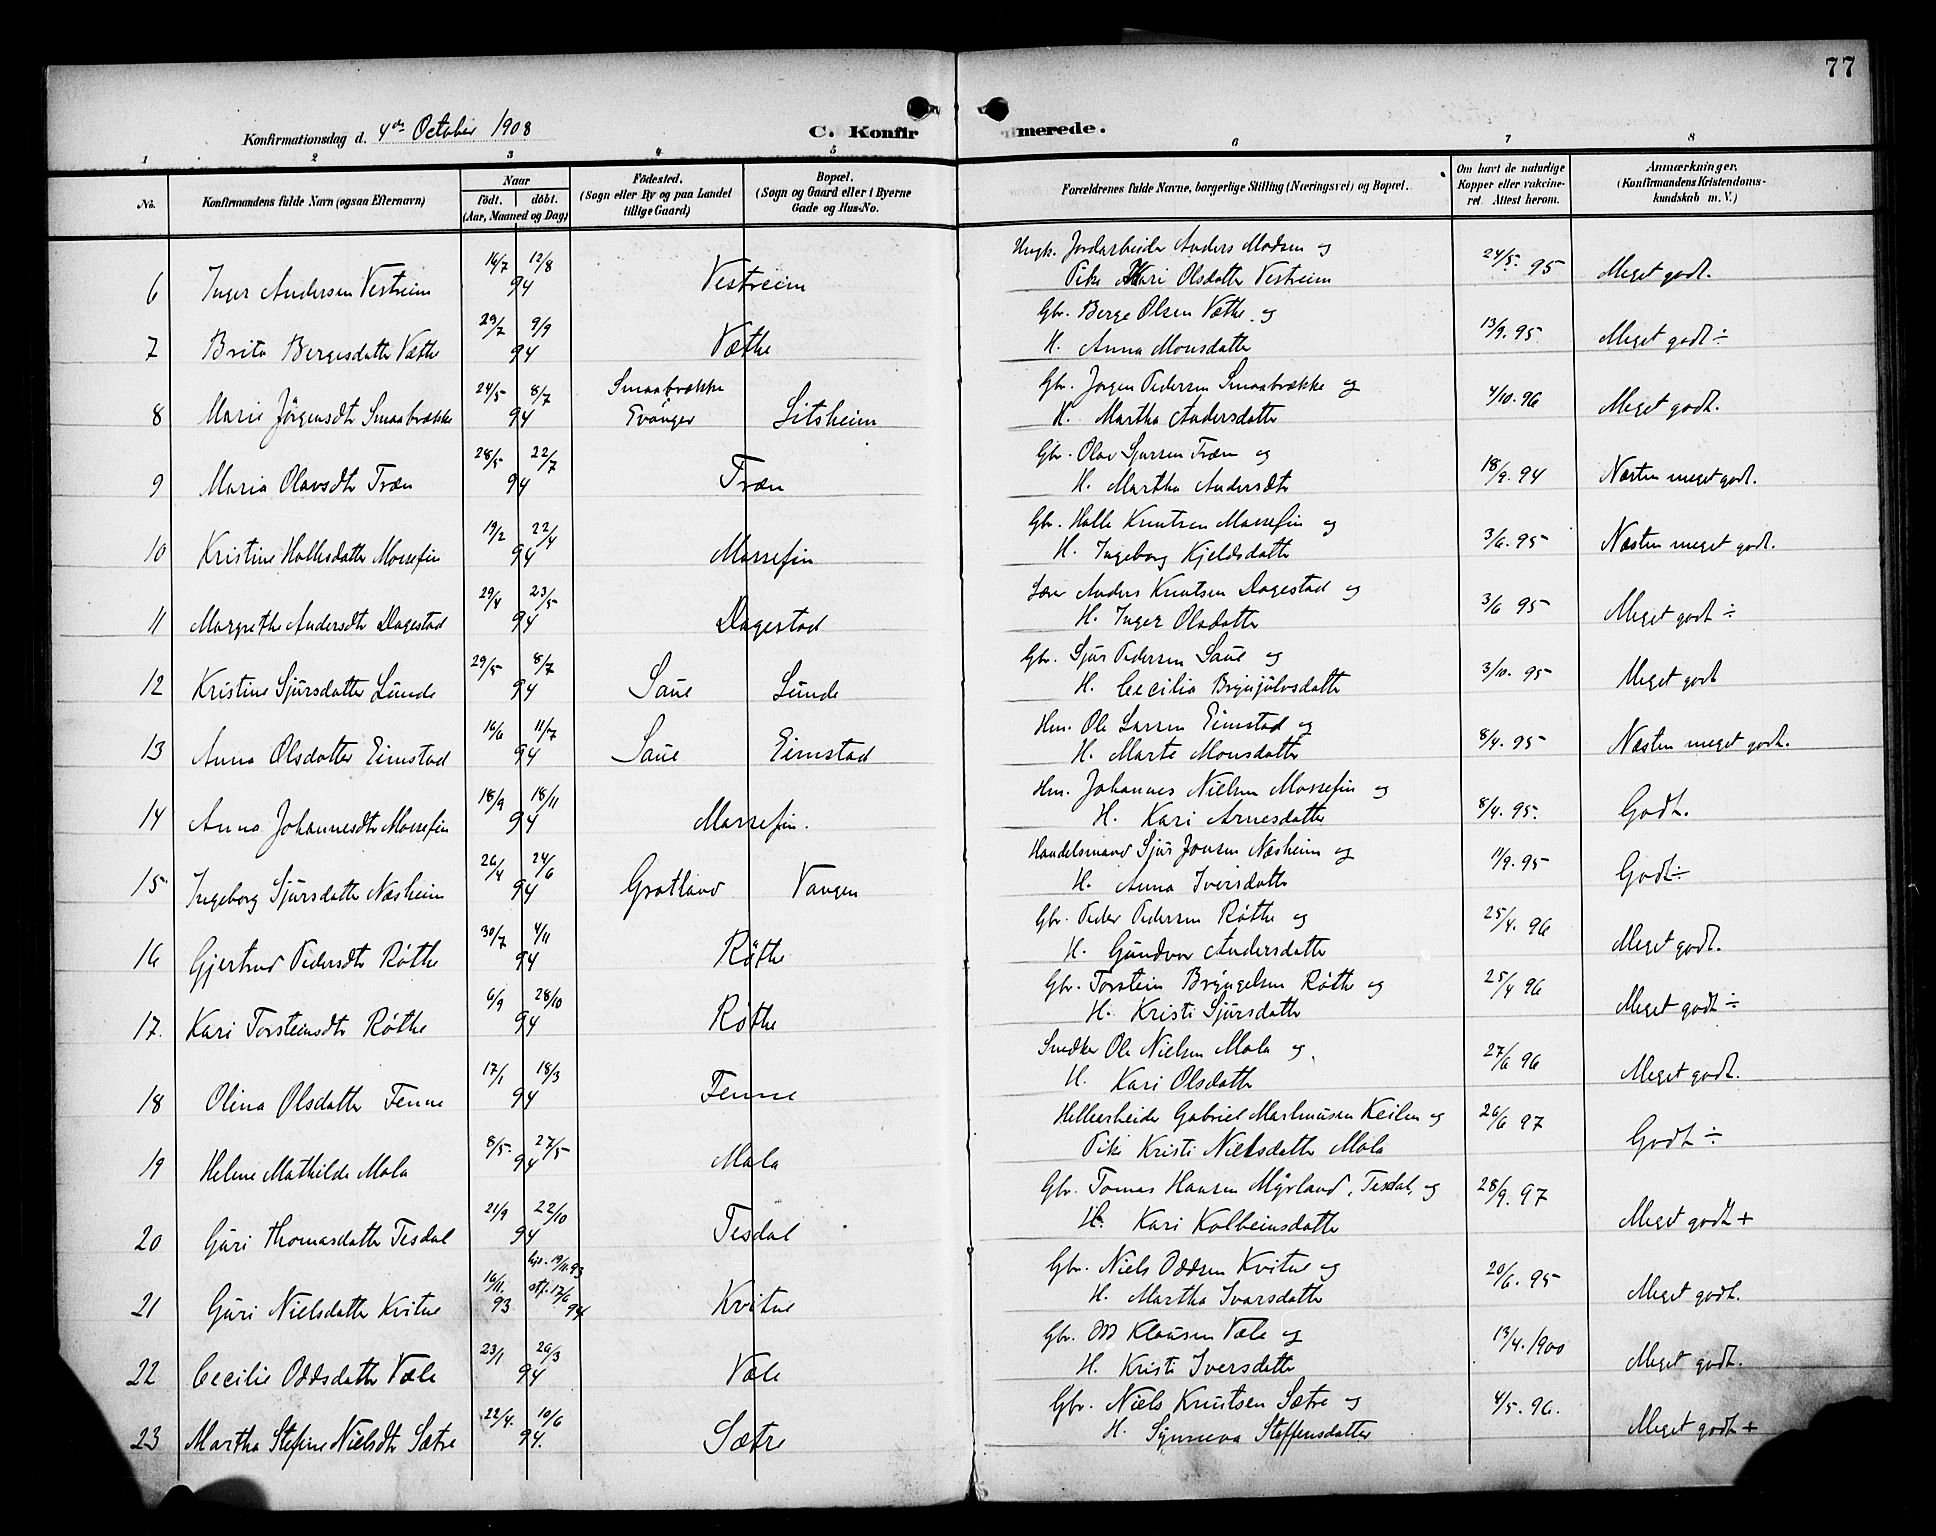 77
Konfirmationsdag d. 4de October 1908
C. Konfirmerede.
1 2 3 4 5 6 7 8
No. Konfirmandens fulde Navn (ogsaa Efternavn) Naar født. døbt. (Aar, Maaned og Dag) Fødested. (Sogn eller By og paa Landet tillige Gaard) Bopæl. (Sogn og Gaard eller i Byerne Gade og Hus-No. Forældrenes fulde Navne, borgerlige Stilling (Næringsvei) og Bopæl. Om havt de naturlige Kopper eller vakcineret. Attest herom. Anmærkninger. (Konfirmandens Kristendomskundskab m. V.)
6 Inger Andersen Vestreim 16/7 12/8 94 Vestreim Ungk. Jordarbeider Anders Madsen og
Pike Kari Olsdatter Vestreim 24/5. 95 Meget godt.
7 Brita Bergesdatter Væthe 29/7 9/9 94 Væthe Gbr. Berge Olsen Væthe og
H. Anna Monsdatter 13/9. 95. Meget godt ÷
8 Marie Jörgensdtr Smaabrække 24/5 8/7 94 Smaabrække Evanger Litsheim Gbr. Jørgen Pedersen Smaabrække og
H. Martha Andersdatter 4/10. 96 Meget godt.
9 Maria Olavsdtr Træn 28/5 22/7 94 Træn Gbr. Olav Sjursen Træn og
H. Martha Andersdtr 18/9. 94 Næsten meget godt.
10 Kristine Hallesdatter Mossefin 19/2 22/4 94 Mossefin Gbr. Halle Knutsen Mossefin og
H. Ingeborg Kjeldsdatter 3/6. 95 Næsten meget godt.
11 Margrethe Andersdtr Dagestad 29/4 23/5 94 Dagestad Lærer Anders Knutsen Dagestad og
H. Inger Olsdatter 3/6 95 Meget godt ÷
12 Kristine Sjursdatter Lunde 29/5 8/7 94 Saue Lunde Gbr. Sjur Pedersen Saue og
H. Cecilia Brynjulvsdatter 3/10. 95 Meget godt
13 Anna Olsdatter Eimstad 16/6 11/7 94 Saue Eimstad Hm. Ole Larsen Eimstad og
H. Marte Monsdatter 8/4. 95 Næsten meget godt.
14 Anna Johannesdtr Mossefin 18/9 18/11 94 Mossefin. Hm. Johannes Nielsen Mossefin og
H. Kari Arnesdatter 8/4. 95. Godt.
15 Ingeborg Sjursdatter Næsheim 26/4 24/6 94 Grotland Vangen Handelsmand Sjur Jonsen Næsheim og
H. Anna Iversdatter 11/9. 95 Godt ÷
16 Gjertrud Pedersdtr Röthe 30/7 4/11 94 Röthe Gbr. Peder Pedersen Röthe og
H. Gundvor Andersdatter 25/4. 96 Meget godt.
17. Kari Torsteinsdtr Röthe 6/9 28/10 94 Röthe Gbr. Torstein Bryngelsen Röthe og
H. Kristi Sjursdatter 25/4 96 Meget godt ÷
18 Olina Olsdatter Fenne 17/1 18/3 94 Fenne Snedker Ole Nielsen Mala og
H. Kari Olsdatter 27/6 96 Meget godt.
19 Helene Mathilde Mala 8/5. 27/5 94 Mala Gabriel Markussen Keilen og
Pike Kristi Nielsdatter Mala 26/6 97 Godt ÷
20 Guri Thomasdatter Tesdal 21/9 22/10 94 Tesdal Gbr. Tomas Hansen Myrland, Tesdal, og
H. Kari Kolbeinsdatter 28/9. 97 Meget godt +
21 Guri Nielsdatter Kvitne 16/11. 93. hjd. 19/11. 93 stf. 17/6 94 Kvitne Gbr. Niels Oddsen Kvitne og
H. Martha Ivarsdatter 20/6. 95 Meget godt.
22 Cecilie Oddsdatter Væle 23/1 26/3 94 Væle Gbr. Odd Klausen Væle og
H. Kristi Iversdatter 13/4. 1900 Meget godt.
23 Martha Stefine Nielsdtr Sætre 22/4. 10/6 94. Sætre Gbr. Niels Knutsen Sætre og
H. Synneva Steffensdatter 4/5. 96. Meget godt +